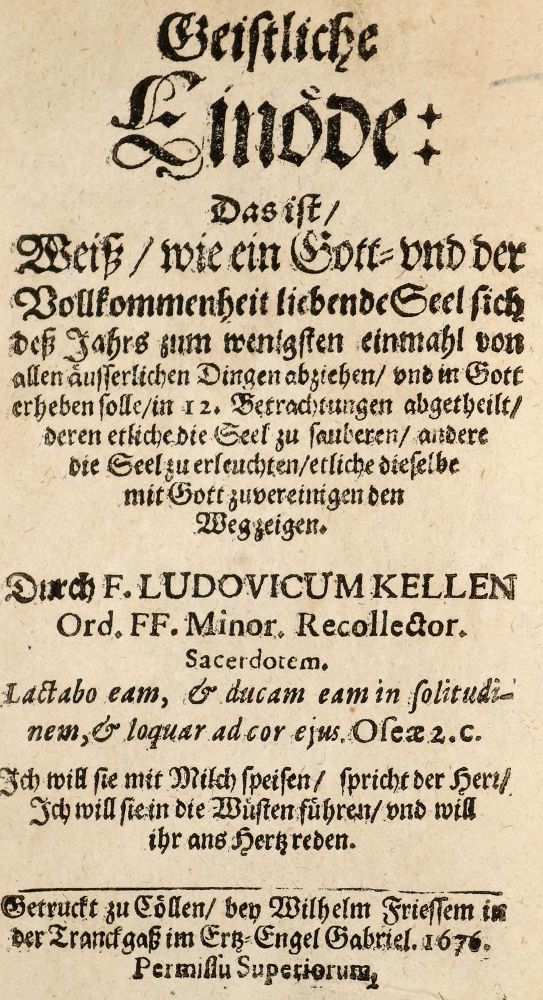 Geiſtliche
Einöde:
Das iſt/
Weiß/ wie ein Gott- vnd der
Vollkommenheit liebende Seel ſich
deß Jahrs zum wenigſten einmahl von
allen äuſſerlichen Dingen abziehen/ vnd in Gott
erheben ſolle/ in 12. Betrachtungen abgetheilt/
deren etliche die Seel zu ſauberen/ andere
die Seel zu erleuchten/ etliche dieſelbe
mit Gott zuvereinigen den
Weg zeigen.
Durch F. LUDOVICUM KELLEN
Ord. FF. Minor. Recollector.
Sacerdotem.
Lactabo eam, & ducam eam in ſolitudi-
nem, & loquar ad cor ejus. Oſeæ 2. C.
Ich will ſie mit Milch ſpeiſen/ ſpricht der Herr/
Ich will ſie in die Wüſten führen/ vnd will
ihr ans Hertz reden.
Getruckt zu Cöllen/ bey Wilhelm Frieſſem in
der Tranckgaß im Ertz-Engel Gabriel. 1676.
Permiſſu Superiorum,